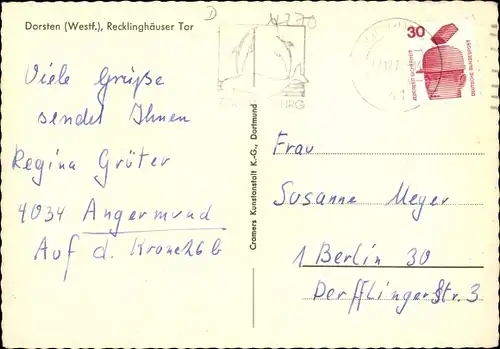 Dorsten (Westf.), Recklinghäuser Tor
D
30
DEUTSCHE BUNDESPOST
Viele Grüße
sendet Ihnen
Regina Grüter
4034 Angermund
Auf d.
Cramers Kunstanstalt K.-G., Dortmund
Frau
Susanne Meyer
1 Berlin 30
Derfflingerstr. 3